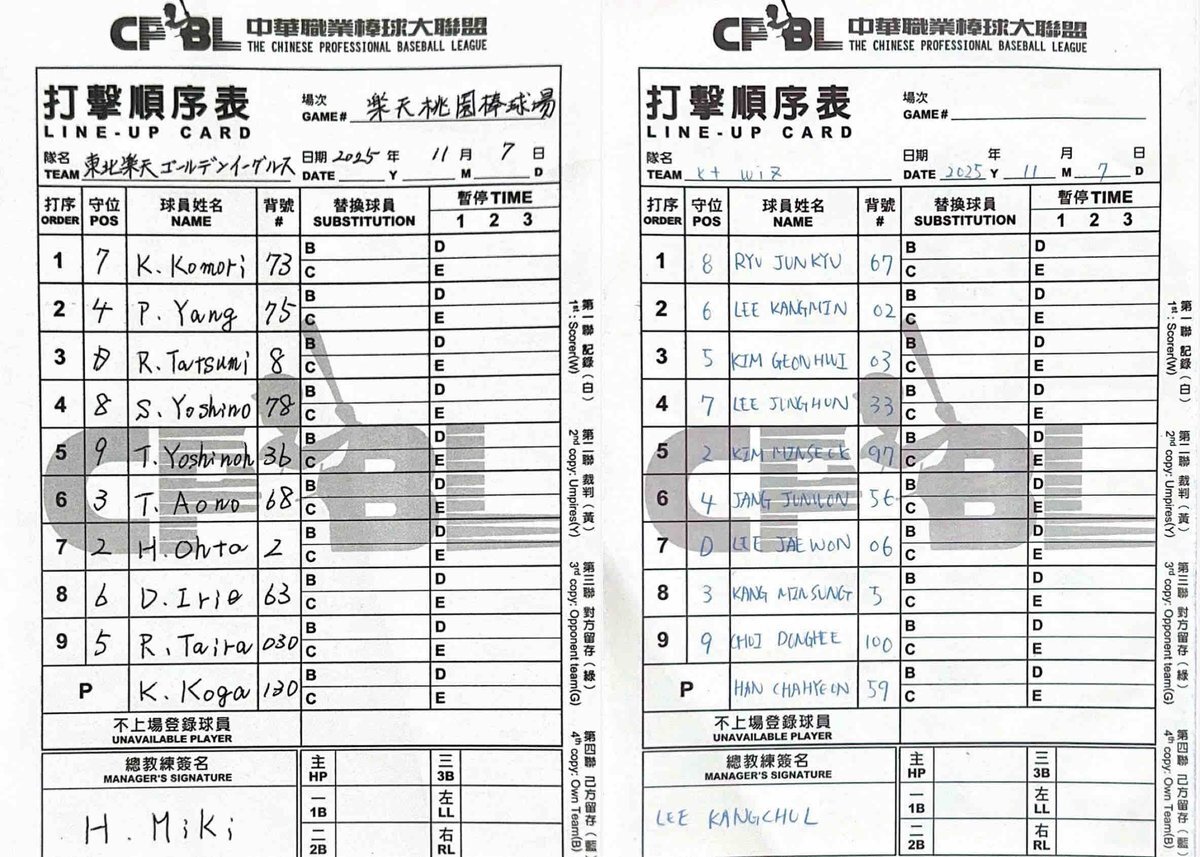 CPBL 中華職業棒球大聯盟
THE CHINESE PROFESSIONAL BASEBALL LEAGUE
打擊順序表
LINE-UP CARD
場次
GAME# 楽天桃園棒球場
隊名
TEAM 東北楽天ゴールデンイーグルス
日期 2025 年 11 月 7 日
DATE Y M D
打序 守位 球員姓名 背號 替換球員 暫停 TIME
ORDER POS NAME # SUBSTITUTION 1 2 3
B D
1 7 K. Komori 73
C E
B D
2 4 P. Yang 75
C E
B D
3 D R. Tatsumi 8
C E
B D
4 8 S. Yoshino 78
C E
B D
5 9 T. Yoshinoh 36
C E
B D
6 3 T. Aono 68
C E
B D
7 2 H. Ohta 2
C E
B D
8 6 D. Irie 63
C E
B D
9 5 R. Taira 030
C E
B D
P K. Koga 130
C E
不上場登錄球員
UNAVAILABLE PLAYER
總教練簽名
MANAGER'S SIGNATURE
H. Miki
主 三
HP 3B
一 左
1B LL
二 右
2B RL
第一聯 記錄（白）
1st : Scorer(W)
第二聯 裁判（黃）
2nd copy: Umpires(Y)
第三聯 對方留存（綠）
3rd copy: Opponent team(G)
第四聯 己方留存（藍）
4th copy: Own Team(B)
CPBL 中華職業棒球大聯盟
THE CHINESE PROFESSIONAL BASEBALL LEAGUE
打擊順序表
LINE-UP CARD
場次
GAME#
隊名
TEAM kt wiz
日期 年 月 日
DATE 2025 Y 11 M 7 D
打序 守位 球員姓名 背號 替換球員 暫停 TIME
ORDER POS NAME # SUBSTITUTION 1 2 3
B D
1 8 RYU JUNKYU 67
C E
B D
2 6 LEE KANGMIN 02
C E
B D
3 5 KIM GEONHWI 03
C E
B D
4 7 LEE JUNGHUN 33
C E
B D
5 2 KIM MINSEOK 97
C E
B D
6 4 JANG JUNWON 56
C E
B D
7 D LEE JAEWON 06
C E
B D
8 3 KANG MINSUNG 5
C E
B D
9 9 CHOI DONGHEE 100
C E
B D
P HAN CHAHYEON 59
C E
不上場登錄球員
UNAVAILABLE PLAYER
總教練簽名
MANAGER'S SIGNATURE
LEE KANGCHUL
主 三
HP 3B
一 左
1B LL
二 右
2B RL
第一聯 記錄（白）
1st : Scorer(W)
第二聯 裁判（黃）
2nd copy: Umpires(Y)
第三聯 對方留存（綠）
3rd copy: Opponent team(G)
第四聯 己方留存（藍）
4th copy: Own Team(B)